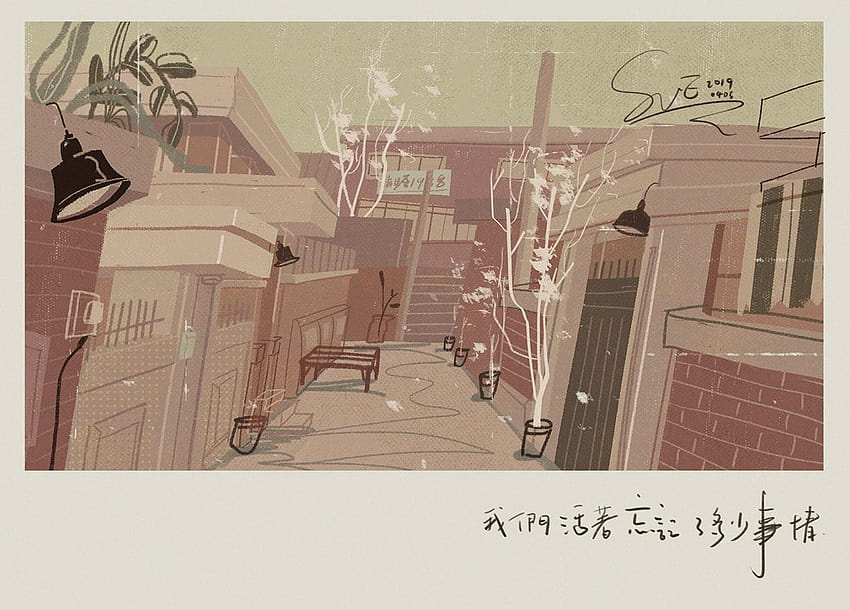 SUE 2019
0405
我們活著忘記了多少事情